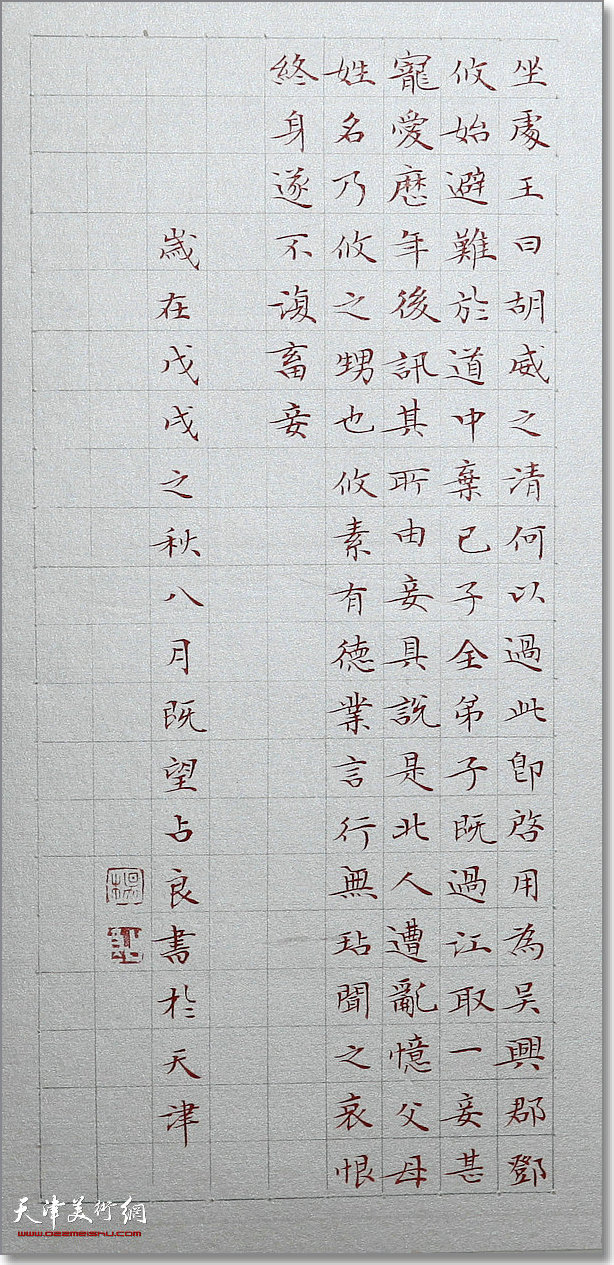 坐處王曰胡威之清何以過此即啓用為吴興郡鄧
攸始避難於道中棄己子全弟子既過江取一妾甚
寵愛歷年後訊其所由妾具説是北人遭亂憶父母
姓名乃攸之甥也攸素有德業言行無玷聞之哀恨
終身遂不復畜妾
歲在戊戌之秋八月既望占良書於天津
天津美術網
www.022meishu.com